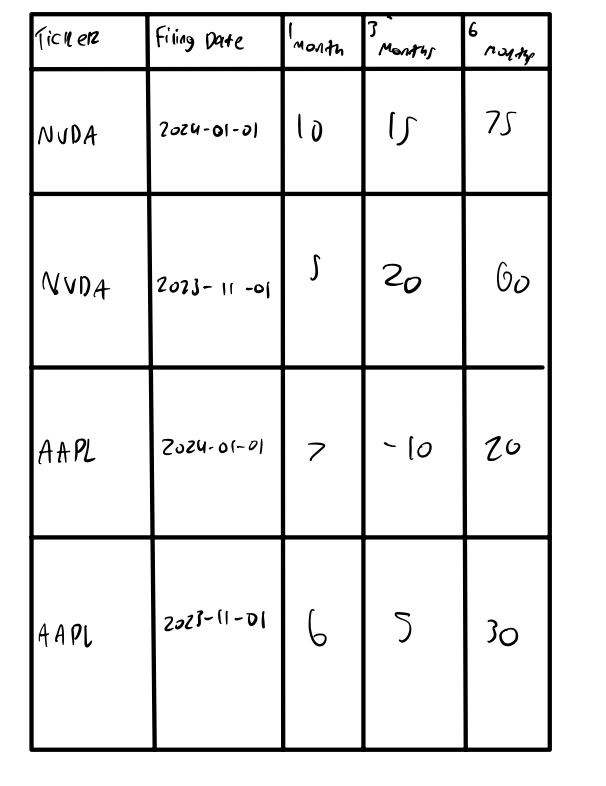 Ticker Filing Date 1 Month 3 Months 6 Months
NVDA 2024-01-01 10 15 75
NVDA 2023-11-01 5 20 60
AAPL 2024-01-01 7 -10 20
AAPL 2023-11-01 6 5 30